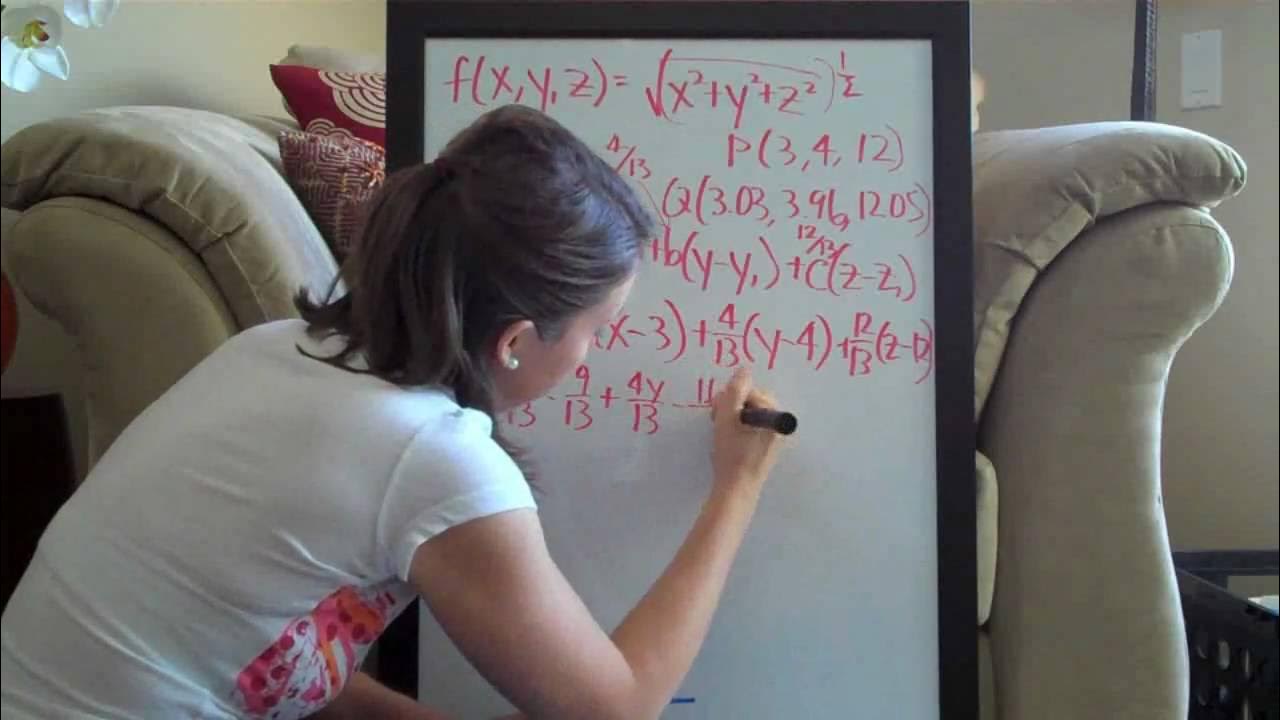 f(x,y,z) = √(x²+y²+z²)^1/2
4/13 P(3,4,12)
Q(3.03, 3.96, 12.05)
+b(y-y₁) + c(z-z₁) 12/13
(x-3) + 4/13 (y-4) + 12/13 (z-12)
13 - 9/13 + 4y/13 -